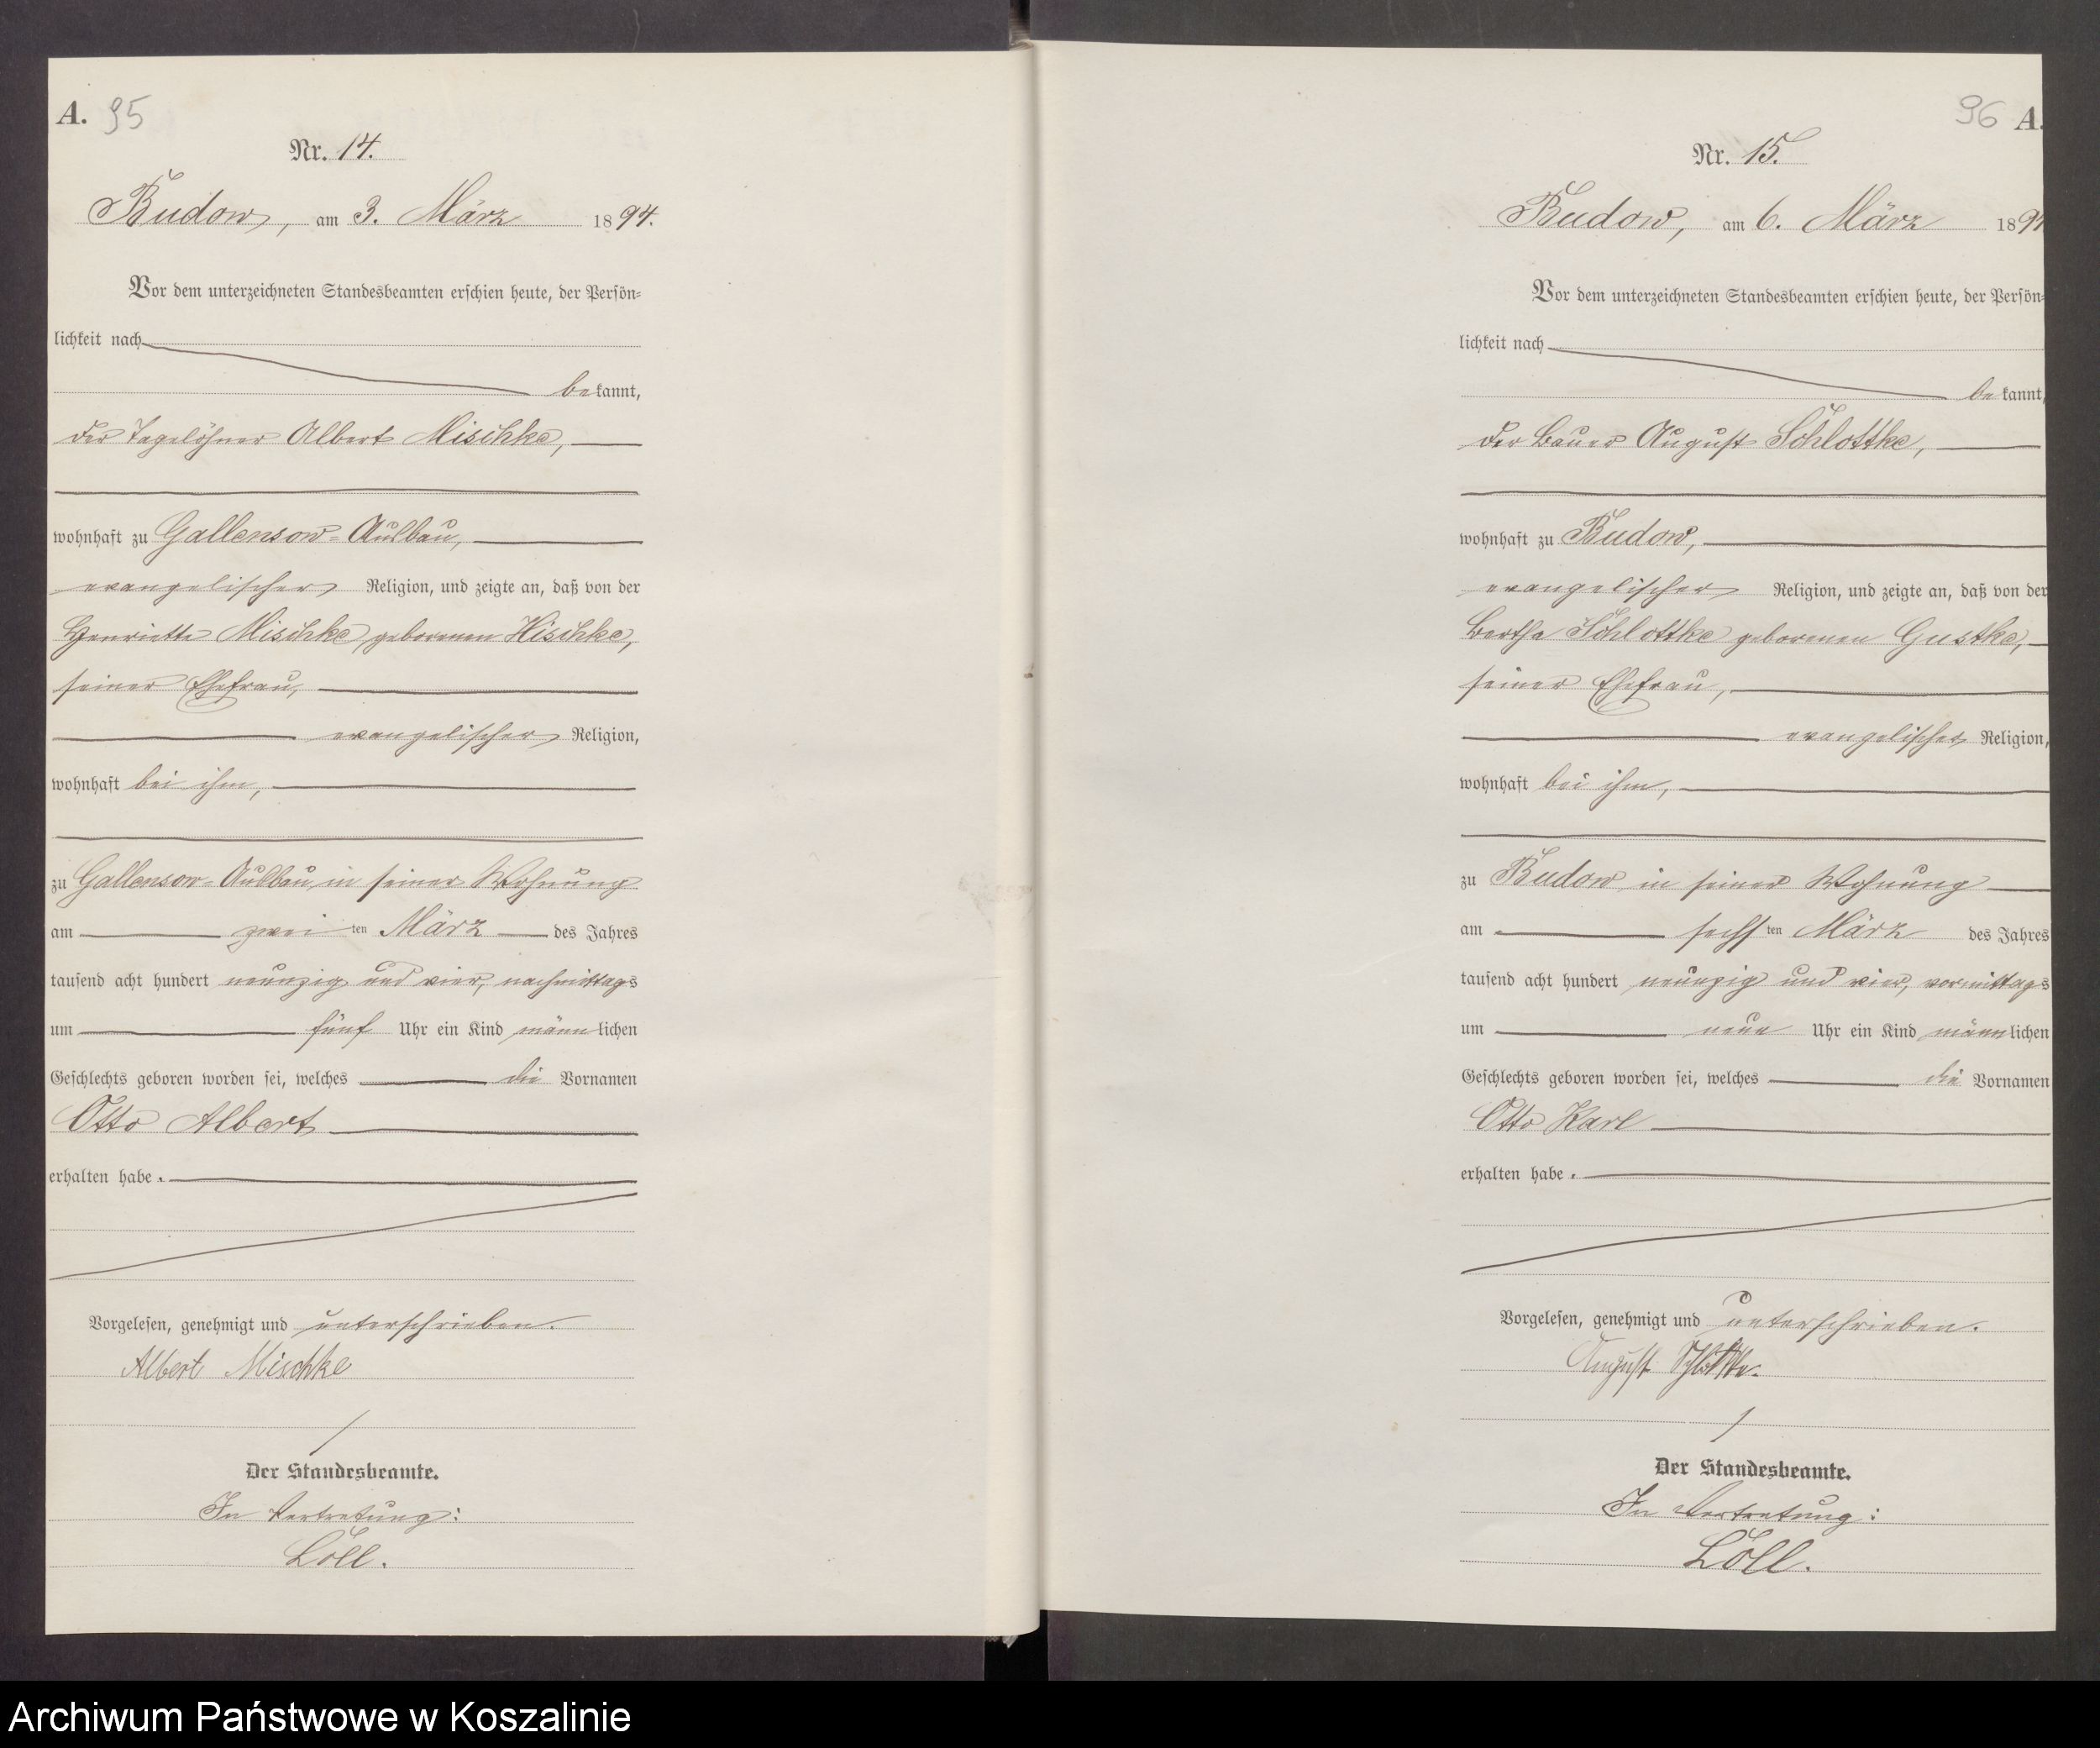 A. 95
Nr. 14.
Budow, am 3. März 1894.
Vor dem unterzeichneten Standesbeamten erschien heute, der Persön-
lichkeit nach
bekannt,
der Tagelöhner Albert Mischke,
wohnhaft zu Gallensow-Ausbau,
evangelischer Religion, und zeigte an, daß von der
Henriette Mischke geborenen Hischke,
seiner Ehefrau,
evangelischer Religion,
wohnhaft bei ihm,
zu Gallensow-Ausbau in seiner Wohnung
am zweiten März des Jahres
tausend acht hundert neunzig und vier, nachmittags
um fünf Uhr ein Kind männlichen
Geschlechts geboren worden sei, welches die Vornamen
Otto Albert
erhalten habe.
Vorgelesen, genehmigt und unterschrieben.
Albert Mischke
Der Standesbeamte.
In Vertretung:
Löll.
96 A.
Nr. 15.
Budow, am 6. März 1894
Vor dem unterzeichneten Standesbeamten erschien heute, der Persön-
lichkeit nach
bekannt,
der Bauer August Schlottke,
wohnhaft zu Budow,
evangelischer Religion, und zeigte an, daß von der
Bertha Schlottke geborenen Gustke,
seiner Ehefrau,
evangelischer Religion,
wohnhaft bei ihm,
zu Budow in seiner Wohnung
am sechsten März des Jahres
tausend acht hundert neunzig und vier, vormittags
um neun Uhr ein Kind männlichen
Geschlechts geboren worden sei, welches die Vornamen
Otto Karl
erhalten habe.
Vorgelesen, genehmigt und unterschrieben.
August Schlottke.
Der Standesbeamte.
In Vertretung:
Löll.
Archiwum Państwowe w Koszalinie